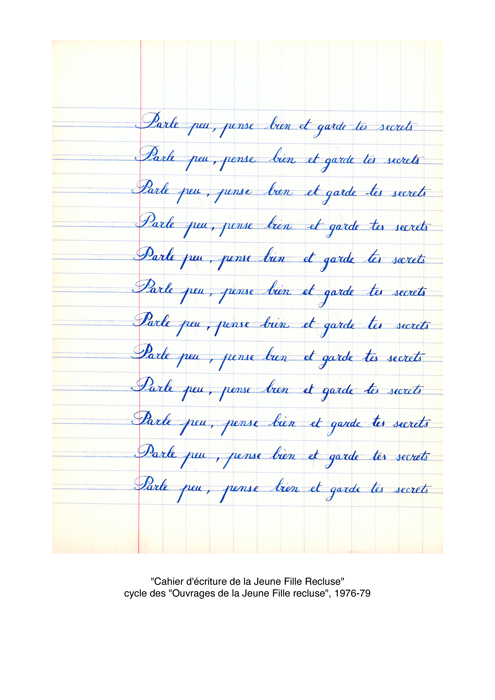 Parle peu, pense bien et garde tes secrets
Parle peu, pense bien et garde tes secrets
Parle peu, pense bien et garde tes secrets
Parle peu, pense bien et garde tes secrets
Parle peu, pense bien et garde tes secrets
Parle peu, pense bien et garde tes secrets
Parle peu, pense bien et garde tes secrets
Parle peu, pense bien et garde tes secrets
Parle peu, pense bien et garde tes secrets
Parle peu, pense bien et garde tes secrets
Parle peu, pense bien et garde tes secrets
Parle peu, pense bien et garde tes secrets
"Cahier d'écriture de la Jeune Fille Recluse"
cycle des "Ouvrages de la Jeune Fille recluse", 1976-79